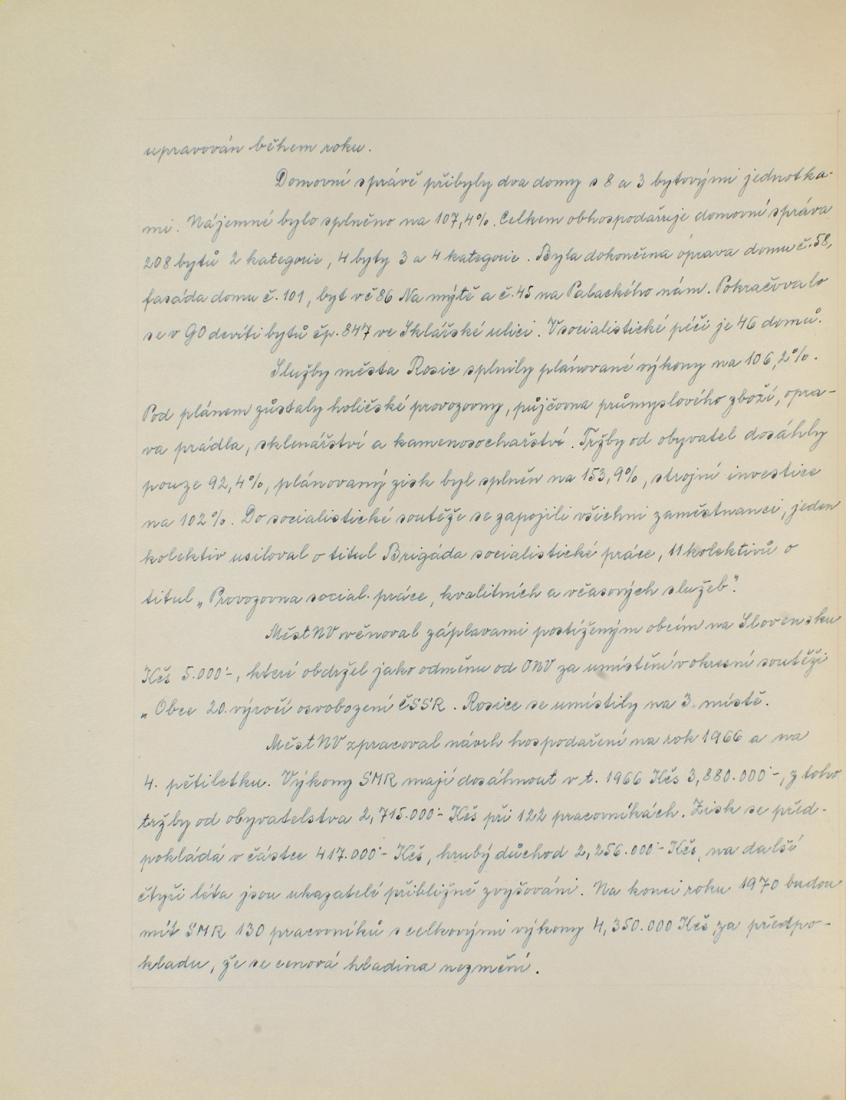 upravován během roku.
Domovní správě přibyly dva domy s 8 a 3 bytovými jednotka-
mi. Nájemné bylo splněno na 107,4%. Celkem obhospodařuje domovní správa
208 bytů 2 kategorie, 4 byty 3 a 4 kategorie. Byla dokončena oprava domu č. 58,
fasáda domu č. 101, byt v č 86 Na mýtě a č. 45 na Palackého nám. Pokračovalo
se v GO devíti bytů čp. 847 ve Sklářské ulici. V socialistické péči je 46 domů.
Služby města Rosic splnily plánované výkony na 106,2%.
Pod plánem zůstaly holičské provozovny, půjčovna průmyslového zboží, opra-
va prádla, sklenářství a kamenosochařství. Tržby od obyvatel dosáhly
pouze 92,4%, plánovaný zisk byl splněn na 153,9%, strojní investice
na 102%. Do socialistické soutěže se zapojili všichni zaměstnanci, jeden
kolektiv usiloval o titul Brigáda socialistické práce, 11 kolektivů o
titul „Provozovna social. práce, kvalitních a včasových služeb".
MěstNV věnoval záplavami postiženým obcím na Slovensku
Kčs 5.000'-, které obdržel jako odměnu od ONV za umístění v okresní soutěži
„Obce 20. výročí osvobození ČSSR. Rosice se umístily na 3. místě.
MěstNV zpracoval návrh hospodaření na rok 1966 a na
4. pětiletku. Výkony SMR mají dosáhnout v r. 1966 Kčs 3,880.000'-, z toho
tržby od obyvatelstva 2,715.000'- Kčs při 122 pracovníkách. Zisk se před-
pokládá v částce 417.000'- Kčs, hrubý důchod 2,256.000'- Kčs, na další
čtyři léta jsou ukazatelé přibližně zvyšováni. Na konci roku 1970 budou
mít SMR 130 pracovníků s celkovými výkony 4,350.000 Kčs za předpo-
kladu, že se cenová hladina nezmění.